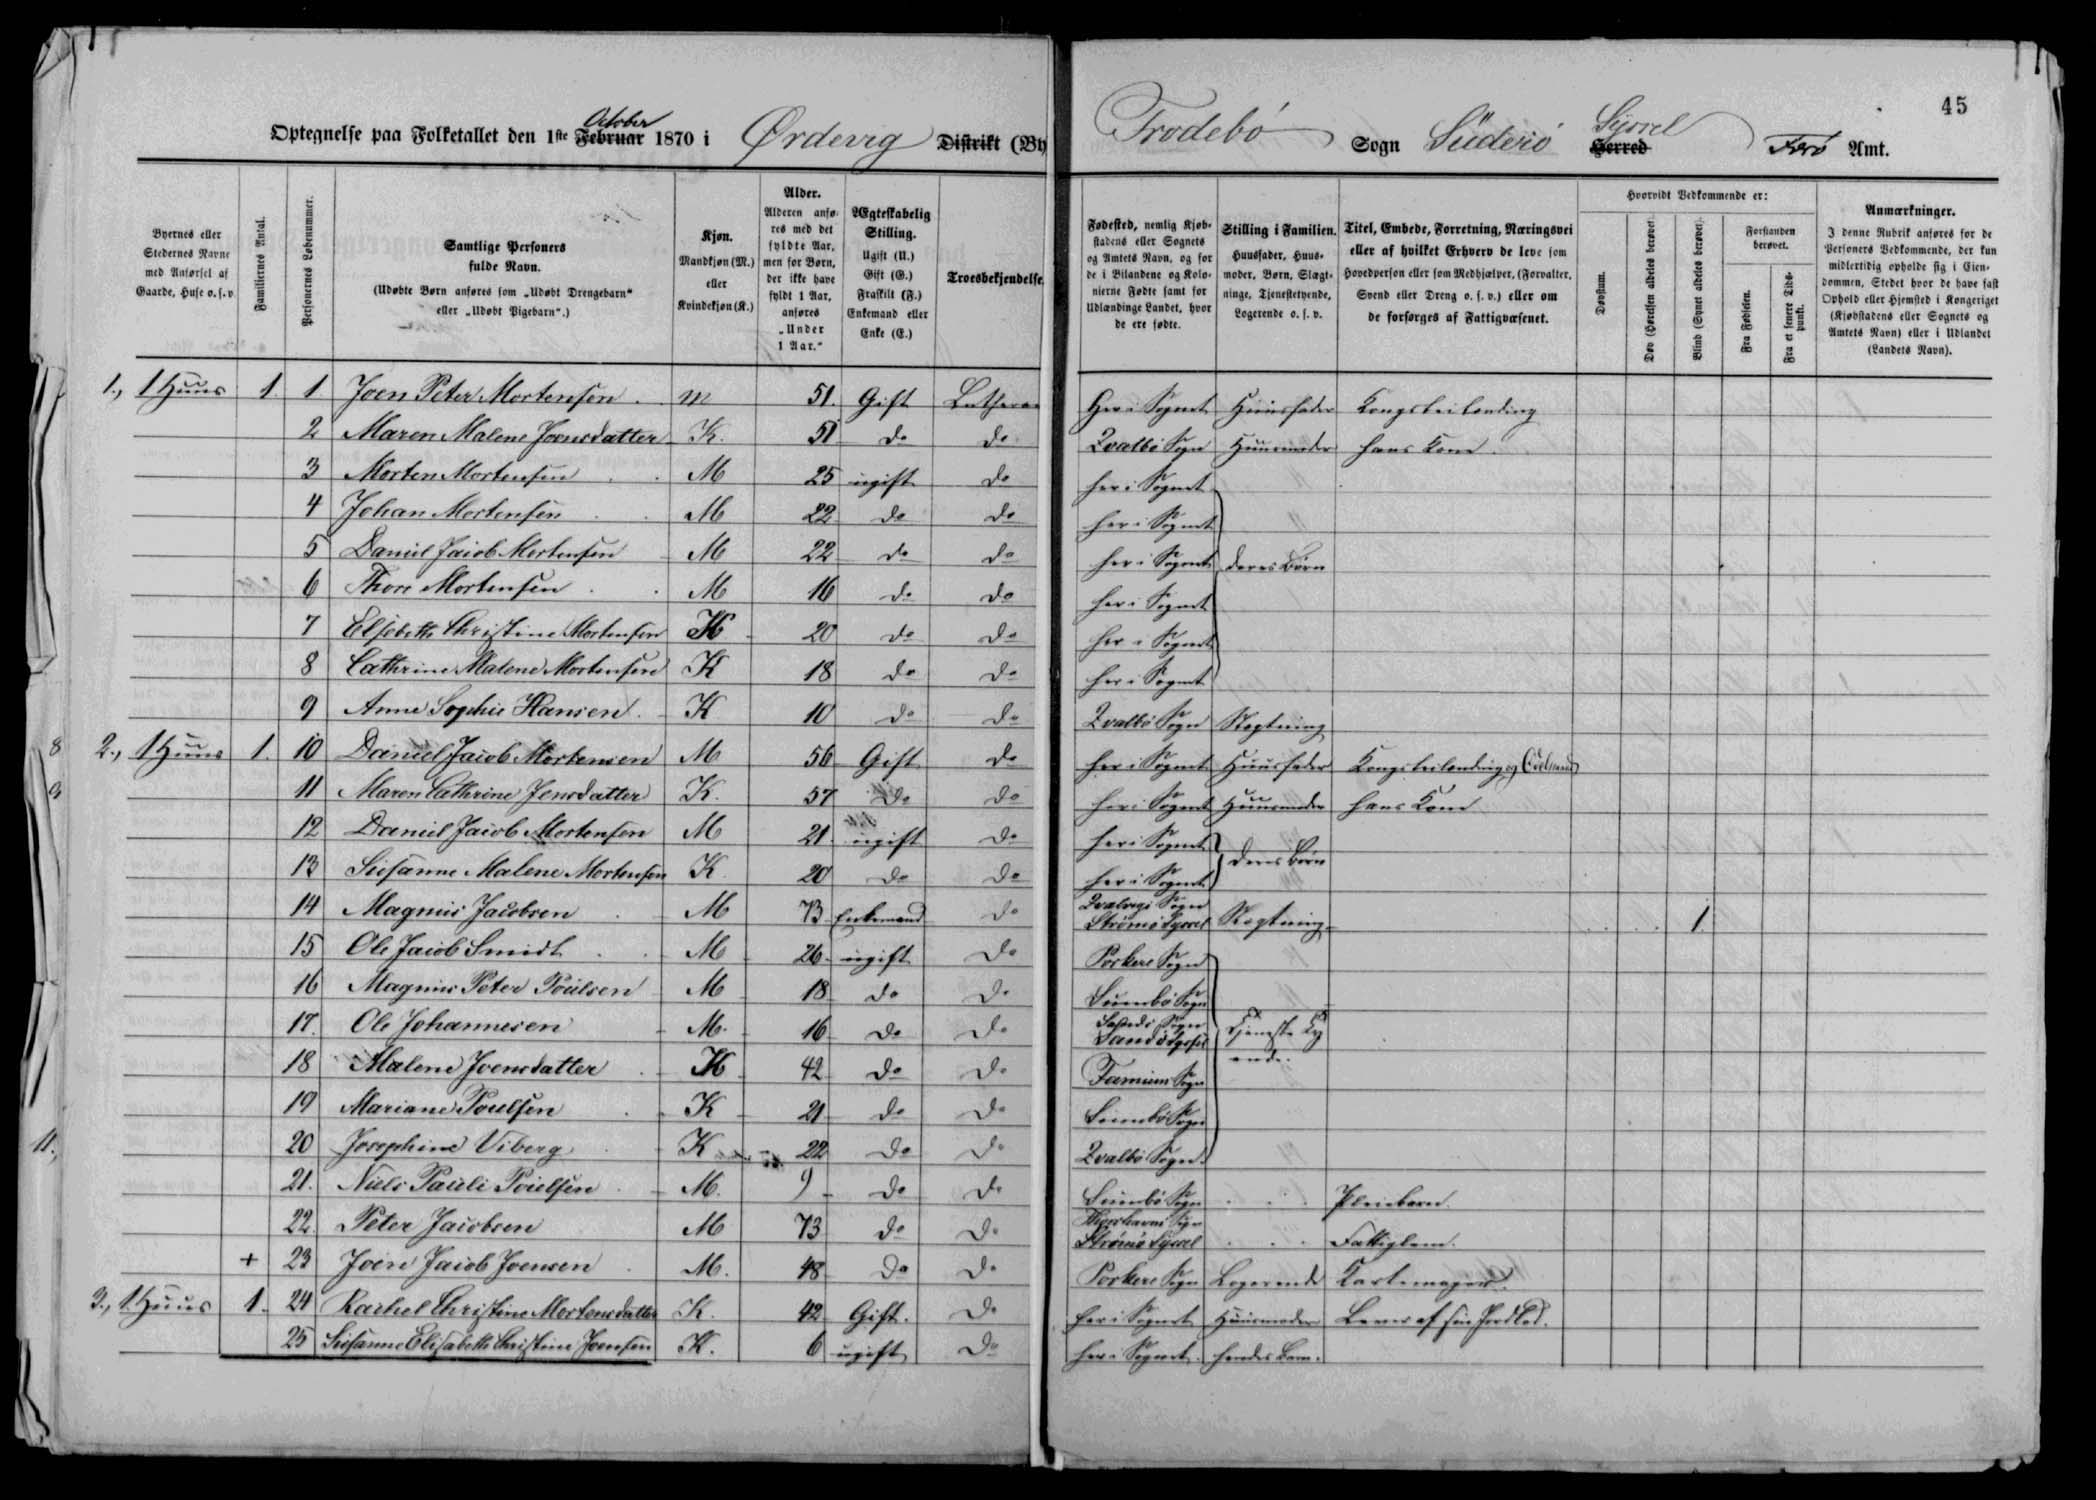 45
Optegnelse paa Folketallet den 1ste Februar October 1870 i Ørdevig Distrikt (By
Trodebö Sogn Süderö Herred Syssel Færö Amt.
Byernes eller Stedernes Navne med Anførsel af Gaarde, Huse o. s. v.
Familiernes Antal.
Personernes Løbenummer.
Samtlige Personers fulde Navn.
(Udøbte Børn anføres som „Udøbt Drengebarn“ eller „Udøbt Pigebarn“.)
Kjøn. Mandkjøn (M.) eller Kvindekjøn (K.)
Alder. Alderen anføres med det fyldte Aar, men for Børn, der ikke have fyldt 1 Aar, anføres „Under 1 Aar.“
Ægteskabelig Stilling. Ugift (U.) Gift (G.) Fraskilt (F.) Enkemand eller Enke (E.)
Troesbekjendelse.
Fødested, nemlig Kjøbstadens eller Sognets og Amtets Navn, og for de i Bilandene og Kolonierne Fødte samt for Udlændinge Landet, hvor de ere fødte.
Stilling i Familien. Huusfader, Huusmoder, Børn, Slægtninge, Tjenestetyende, Logerende o. s. v.
Titel, Embede, Forretning, Næringsvei eller af hvilket Erhverv de leve som Hovedperson eller som Medhjælper, (Forvalter, Svend eller Dreng o. s. v.) eller om de forsørges af Fattigvæsenet.
Hvorvidt Vedkommende er:
Døvstum.
Døv (Hørelsen aldeles berøvet).
Blind (Synet aldeles berøvet).
Forstanden berøvet.
Fra Fødselen.
Fra et senere Tidspunkt.
Anmærkninger. I denne Rubrik anføres for de Personers Vedkommende, der kun midlertidig opholde sig i Eiendommen, Stedet hvor de have fast Ophold eller Hjemsted i Kongeriget (Kjøbstadens eller Sognets og Amtets Navn) eller i Udlandet (Landets Navn).
1., 1 Huus 1. 1 Joen Peter Mortensen M 51 Gift Luthera Her i Sognet Huusfader Kongsleilending
2 Maren Malene Joensdatter K. 51 do do Qvalbö Sogn Huusmoder hans Kone.
3 Morten Mortensen M 25 ugift do her i Sognet
4 Johan Mortensen M 22 do do her i Sognet
5 Daniel Jacob Mortensen M 22 do do her i Sognet deres Börn
6 Thore Mortensen M 16 do do her i Sognet
7 Elsebeth Christine Mortensen K 20 do do her i Sognet
8 Cathrine Malene Mortensen K 18 do do her i Sognet
9 Anne Sophie Hansen K 10 do do Qvalbö Sogn Slegtning
8 2., 1 Huus 1. 10 Daniel Jacob Mortensen M 56 Gift do her i Sognet Huusfader Kongsleilending og Odelsmand
9 11 Maren Cathrine Jensdatter K. 57 do do her i Sognet Huusmoder hans Kone
12 Daniel Jacob Mortensen M 21 ugift do her i Sognet
13 Susanne Malene Mortensen K 20 do do her i Sognet deres Börn
14 Magnus Jacobsen M 73 Enkemand do Qvalvigs Sogn Strömö Syssel Slegtning 1.
15 Ole Jacob Smidt M 26 ugift do Porkere Sogn
16 Magnus Peter Poulsen M 18 do do Sumbö Sogn
17. Ole Johannesen M. 16 do do Sands Sogn Sandö Syssel Tjeneste Ty
18 Malene Joensdatter K 42 do do Famien Sogn ende.
19 Mariane Poulsen K 21 do do Sumbö Sogn
11., 20 Josephine Viberg K 22 do do Qvalbö Sogn
21. Niels Pauli Poulsen M. 9 do do Sumbö Sogn Pleiebarn.
22. Peter Jacobsen M 73 do do Thorshavns Sogn Strömö Syssel Fattiglem.
+ 23 Joen Jacob Joensen M. 48 do do Porkere Sogn Logerende Kartemager.
3., 1 Huus 1. 24 Rachel Christine Mortensdatter K. 42 Gift. do her i Sognet Huusmoder Lever af sin Jordlod.
25 Susanne Elisabeth Christine Joensen K. 6 ugift do her i Sognet. hendes Barn.